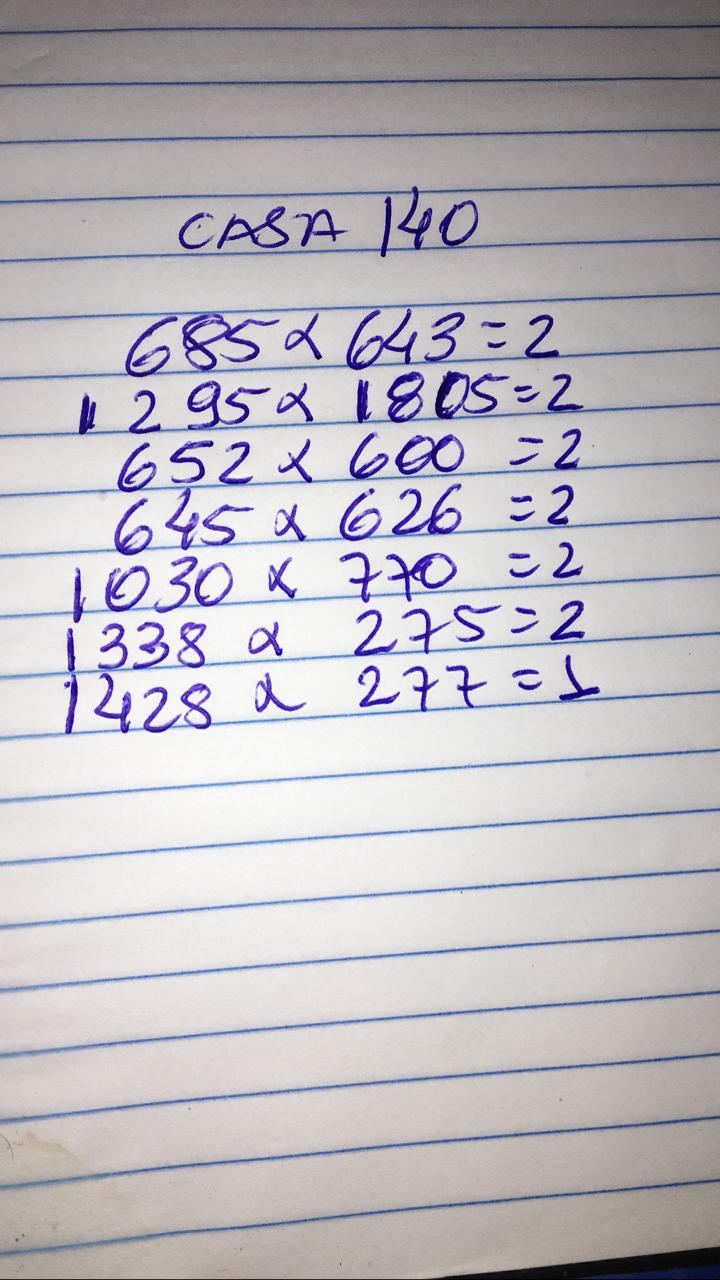 CASA 140
685 x 643 = 2
1295 x 1805 = 2
652 x 600 = 2
645 x 626 = 2
1030 x 770 = 2
1338 x 275 = 2
1428 x 277 = 1